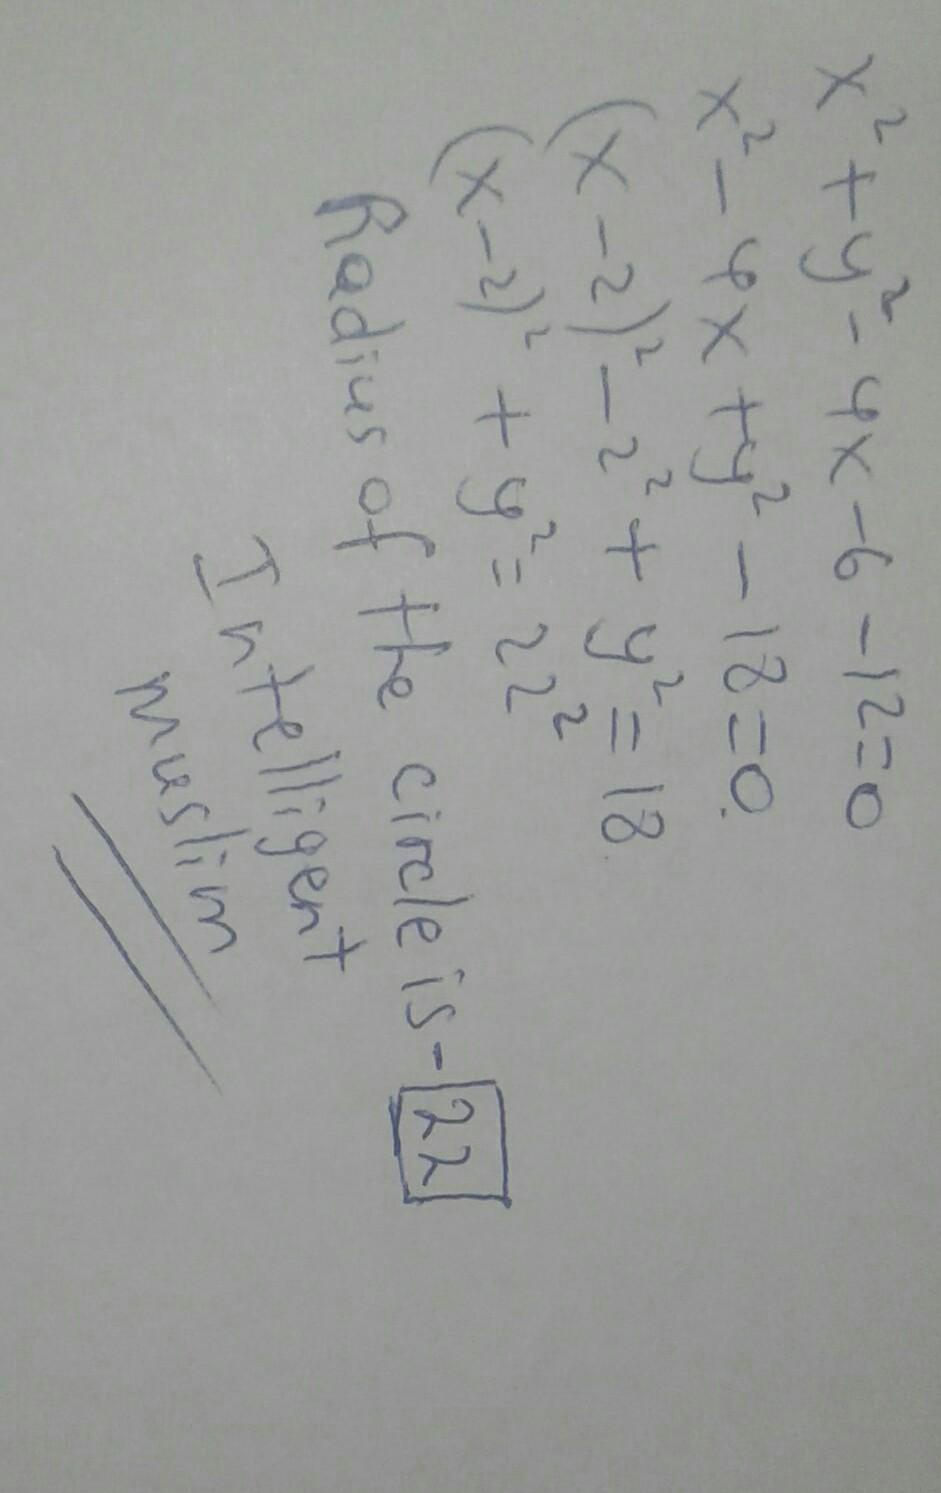 x² + y² - 4x - 6 - 12 = 0
x² - 4x + y² - 18 = 0.
(x - 2)² - 2² + y² = 18
(x - 2)² + y² = 22²
Radius of the circle is - 22
Intelligent
muslim